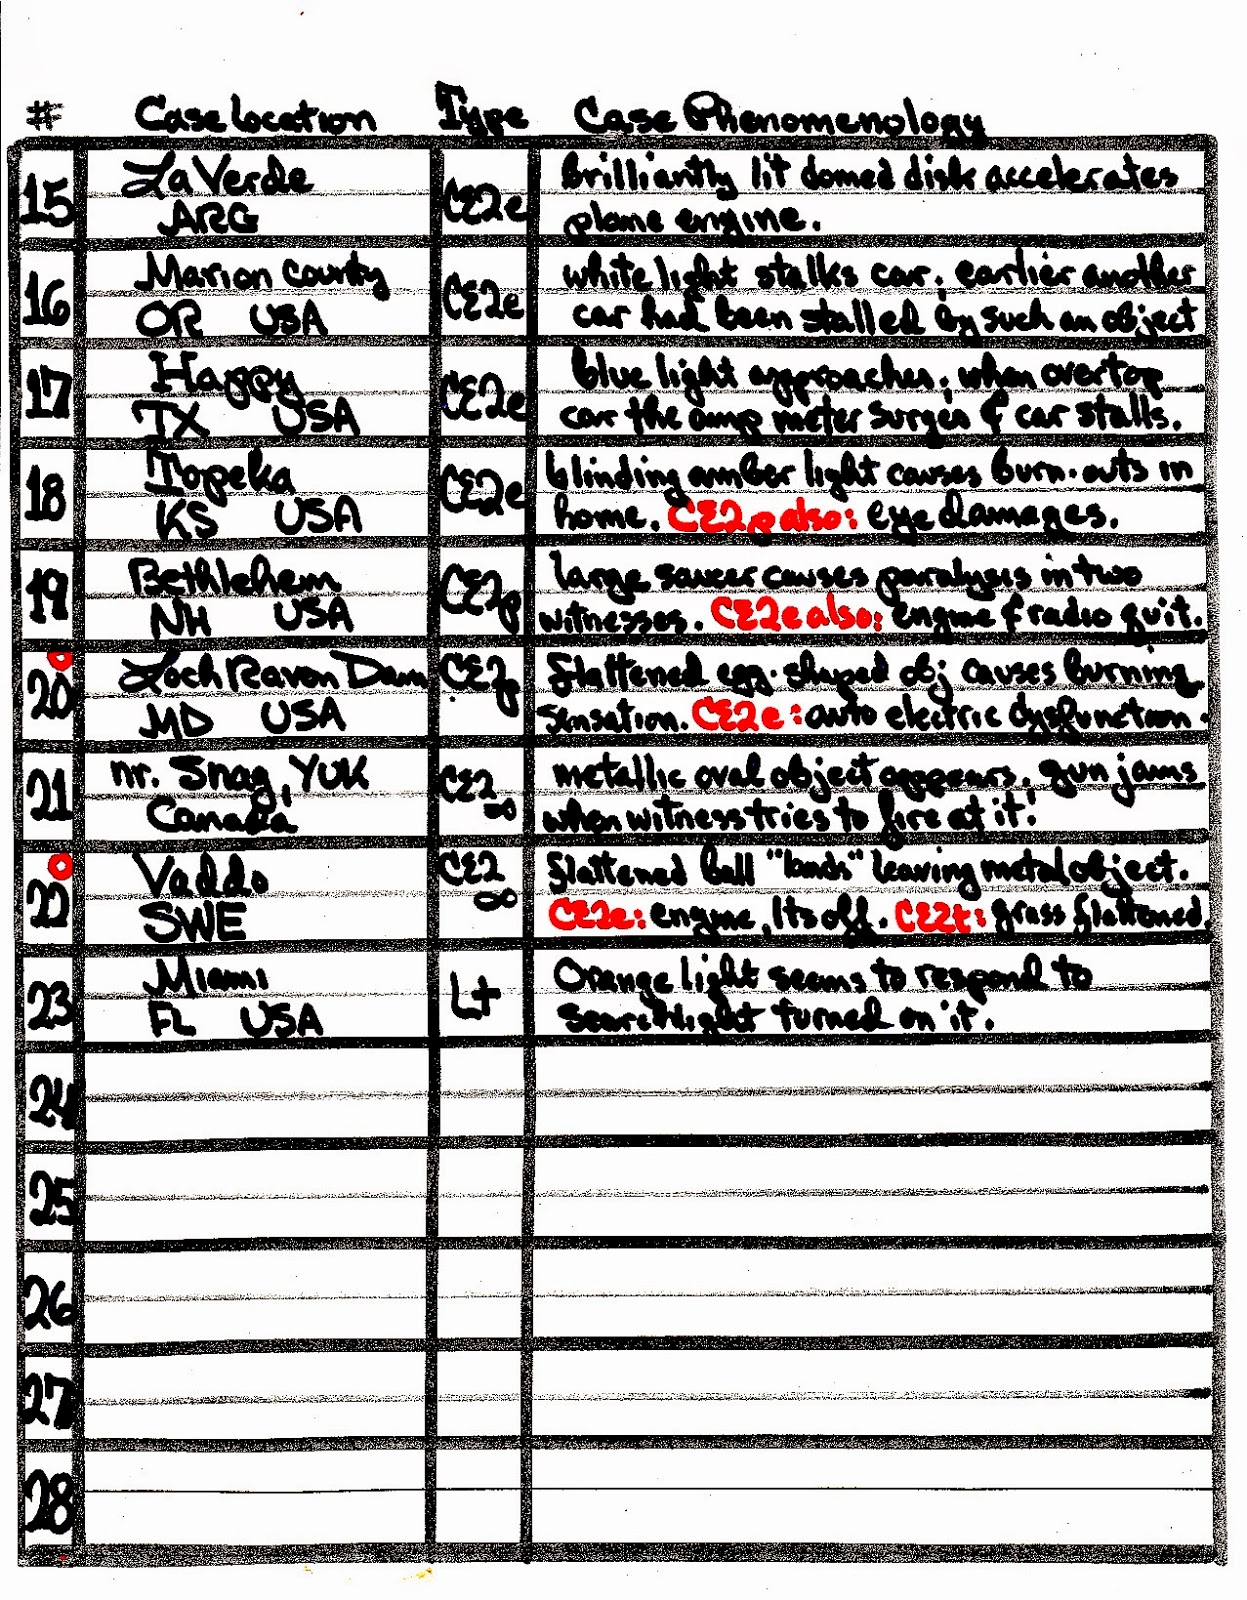 # Case Location Type Case Phenomenology
15 La Verde CE2e Brilliantly lit domed disk accelerates
ARG plane engine.
16 Marion County CE2e white light stalks car; earlier another
OR USA car had been stalled by such an object
17 Happy CE2e blue light approaches; when overtop
TX USA car the amp meter surges & car stalls.
18 Topeka CE2e blinding amber light causes burn-outs in
KS USA home. CE2p also: eye damages.
19 Bethlehem CE2p large saucer causes paralysis in two
NH USA witnesses. CE2e also: engine & radio quit.
20 Loch Raven Dam CE2p flattened egg-shaped obj causes burning
MD USA sensation. CE2e: auto electric dysfunction.
21 nr. Snag, YUK CE2 metallic oval object appears. gun jams
Canada ∞ when witness tries to fire at it!
22 Vaddo CE2 flattened ball "lands" leaving metal object.
SWE ∞ CE2e: engine, lts off. CE2t: grass flattened.
23 Miami Lt Orange light seems to respond to
FL USA searchlight turned on it.
24
25
26
27
28